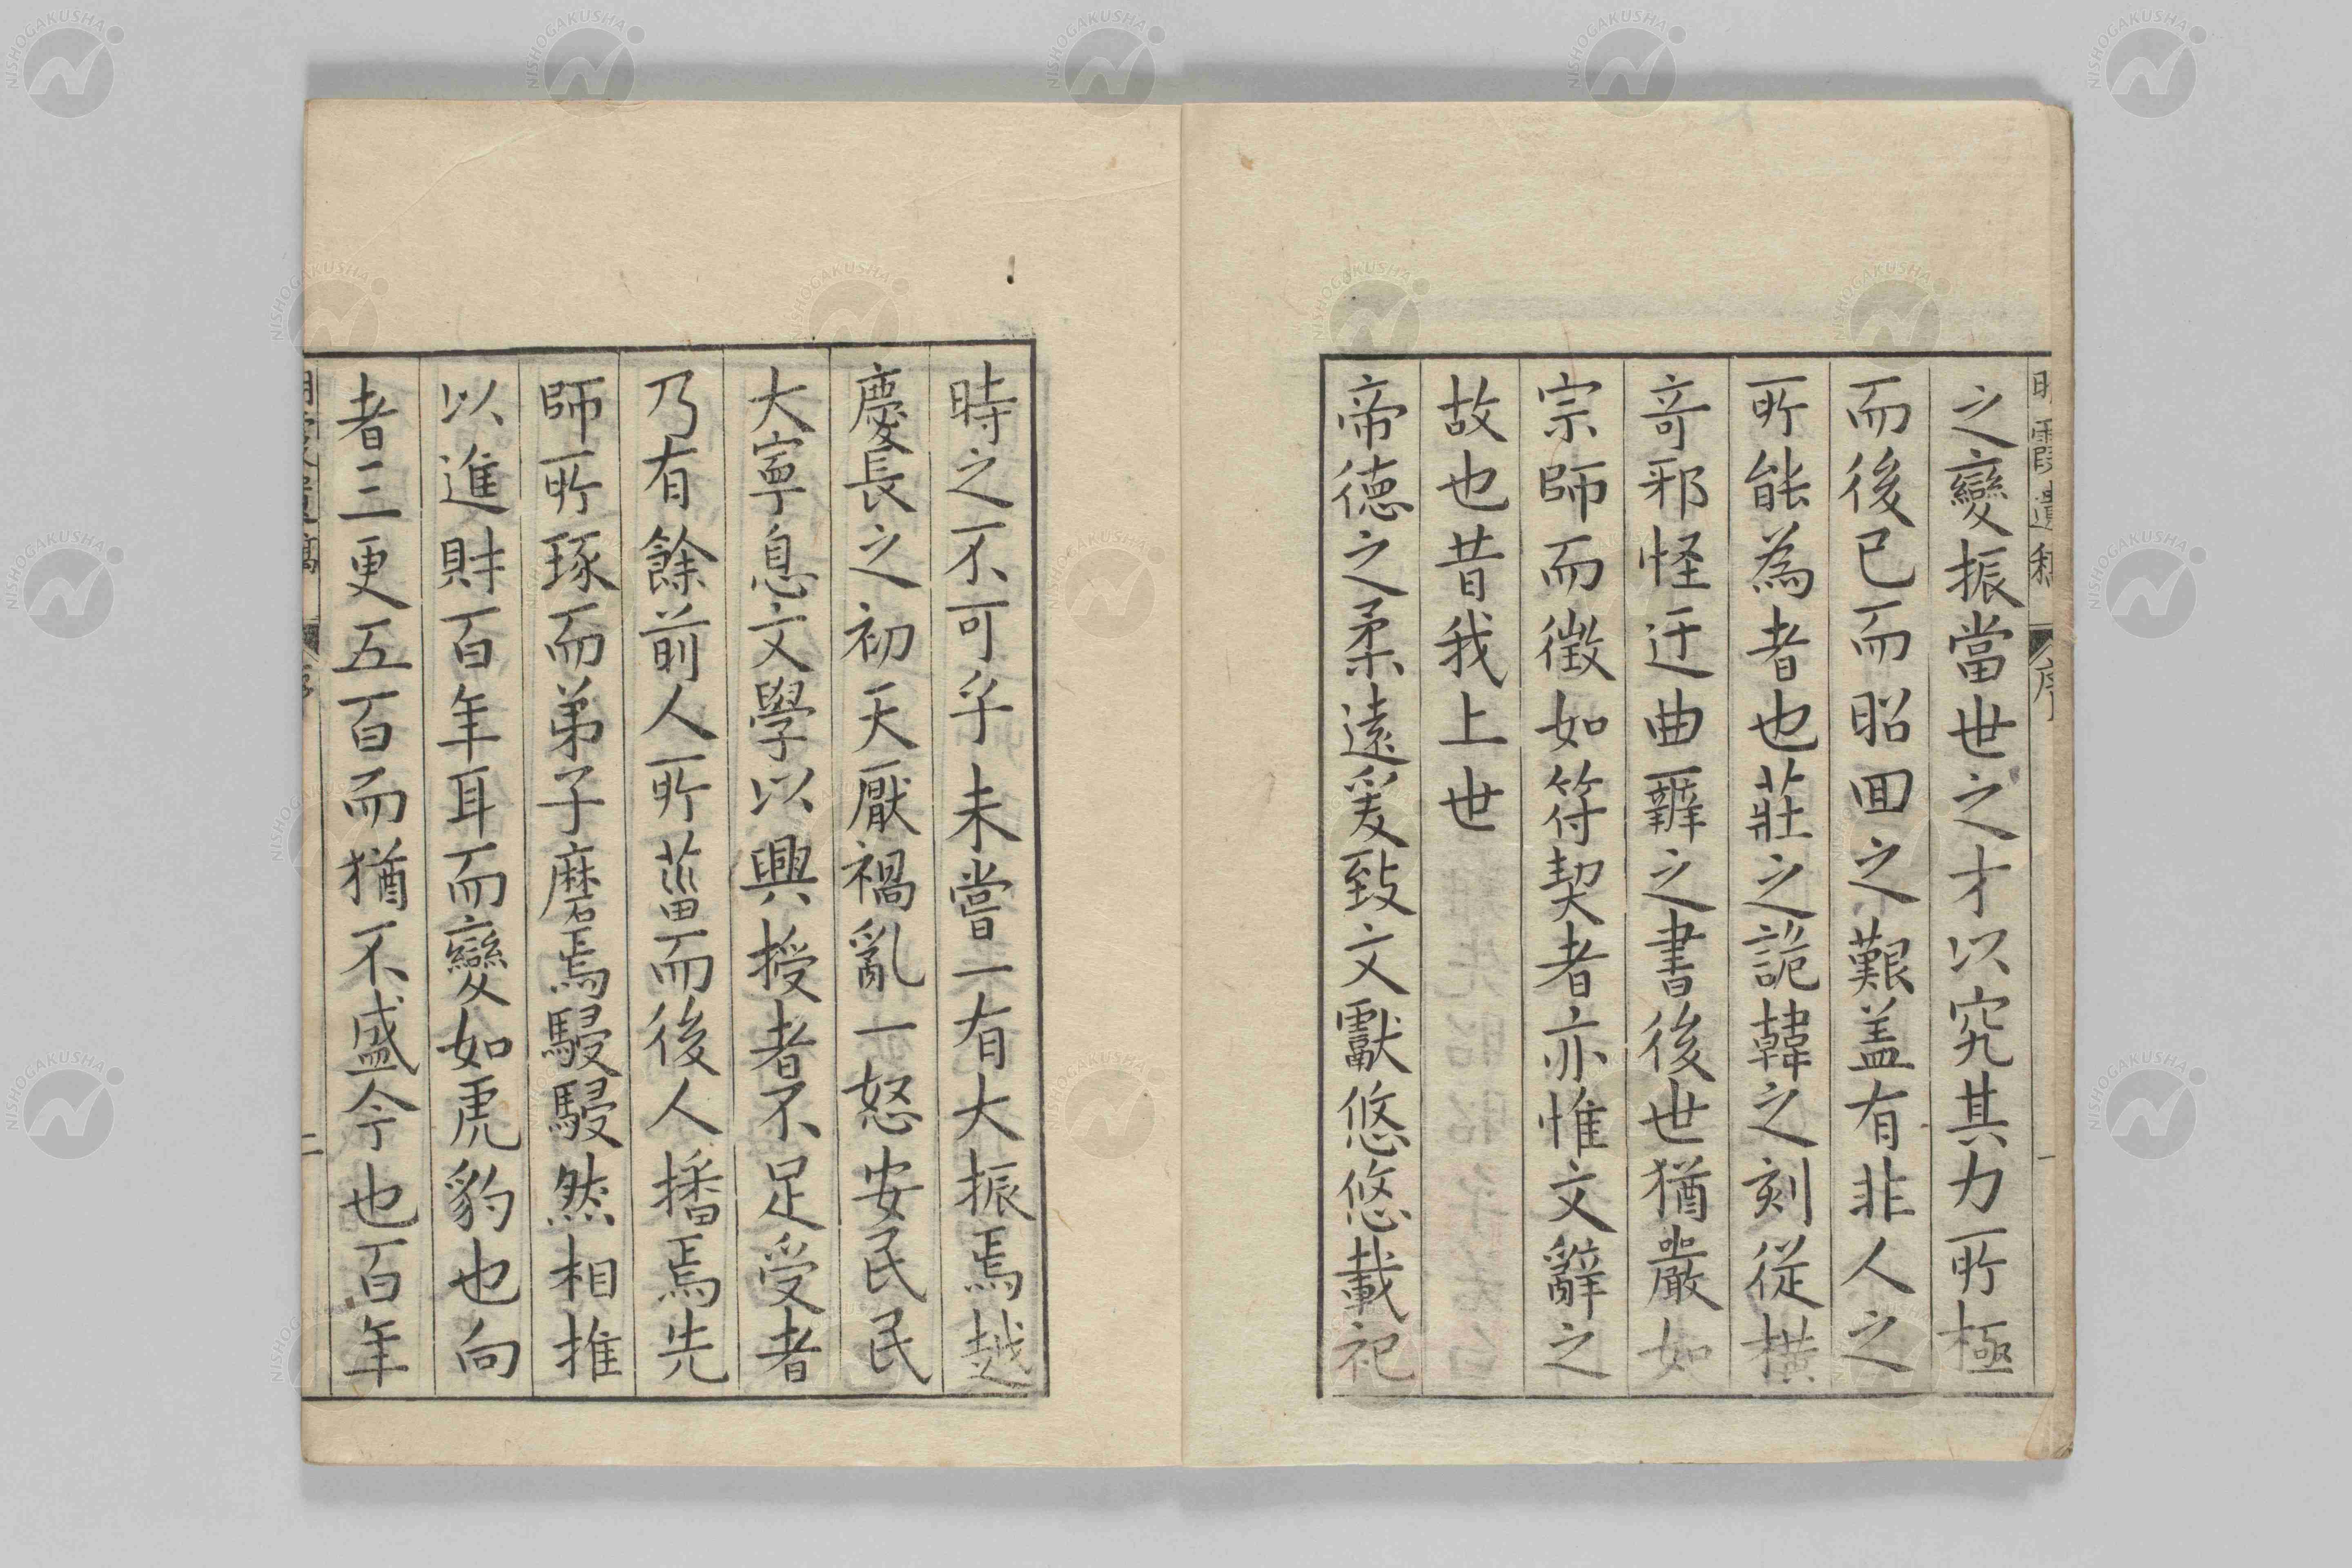 之變振當世之才以究其力所極
而後已而昭回之艱盖有非人之
所能為者也莊之詭韓之刻從橫
竒邪怪迂曲辭之書後世猶嚴如
宗師而徵如符契者亦惟文辭之
故也昔我上世
帝德之柔遠爰致文獻悠悠載祀
時之不可乎未嘗一有大振焉越
慶長之初天厭禍亂一怒安民民
大寧息文學以興授者不足受者
乃有餘前人所菑而後人播焉先
師所琢而弟子磨焉駸駸然相推
以進財百年耳而變如虎豹也向
者三更五百而猶不盛今也百年
序
一
二
NISHOGAKUSHA